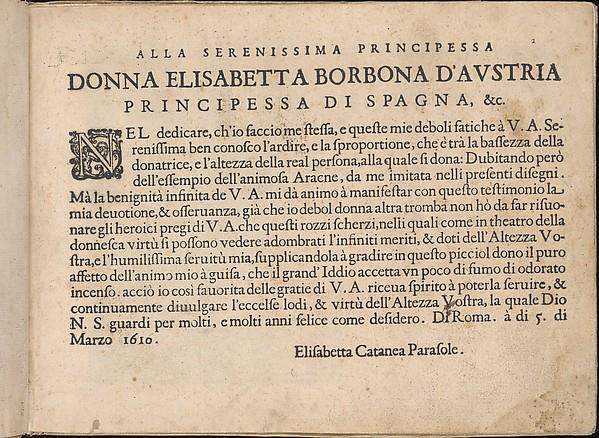 2
ALLA SERENISSIMA PRINCIPESSA
DONNA ELISABETTA BORBONA D'AVSTRIA
PRINCIPESSA DI SPAGNA, &c.
NEL dedicare, ch'io faccio me stessa, e queste mie deboli fatiche à V. A. Se-
renissima ben conosco l'ardire, e la sproportione, che è trà la bassezza della
donatrice, e l'altezza della real persona, alla quale si dona: Dubitando però
dell'essempio dell'animosa Aracne, da me imitata nelli presenti disegni.
Mà la benignità infinita de V. A. mi dà animo à manifestar con questo testimonio la
mia deuotione, & osseruanza, già che io debol donna altra tromba non hò da far risuo-
nare gli heroici pregi di V.A. che questi rozzi scherzi, nelli quali come in theatro della
donnesca virtù si possono vedere adombrati l'infiniti meriti, & doti dell'Altezza Vo-
stra, e l'humilissima seruitù mia, supplicandola à gradire in questo picciol dono il puro
affetto dell'animo mio à guisa, che il grand'Iddio accetta vn poco di fumo di odorato
incenso. acciò io così fauorita delle gratie di V. A. riceua spirito à poterla seruire, &
continuamente diuulgare l'eccelse lodi, & virtù dell'Altezza Vostra, la quale Dio
N. S. guardi per molti, e molti anni felice come desidero. Di Roma. à di 5. di
Marzo 1610.
Elisabetta Catanea Parasole.